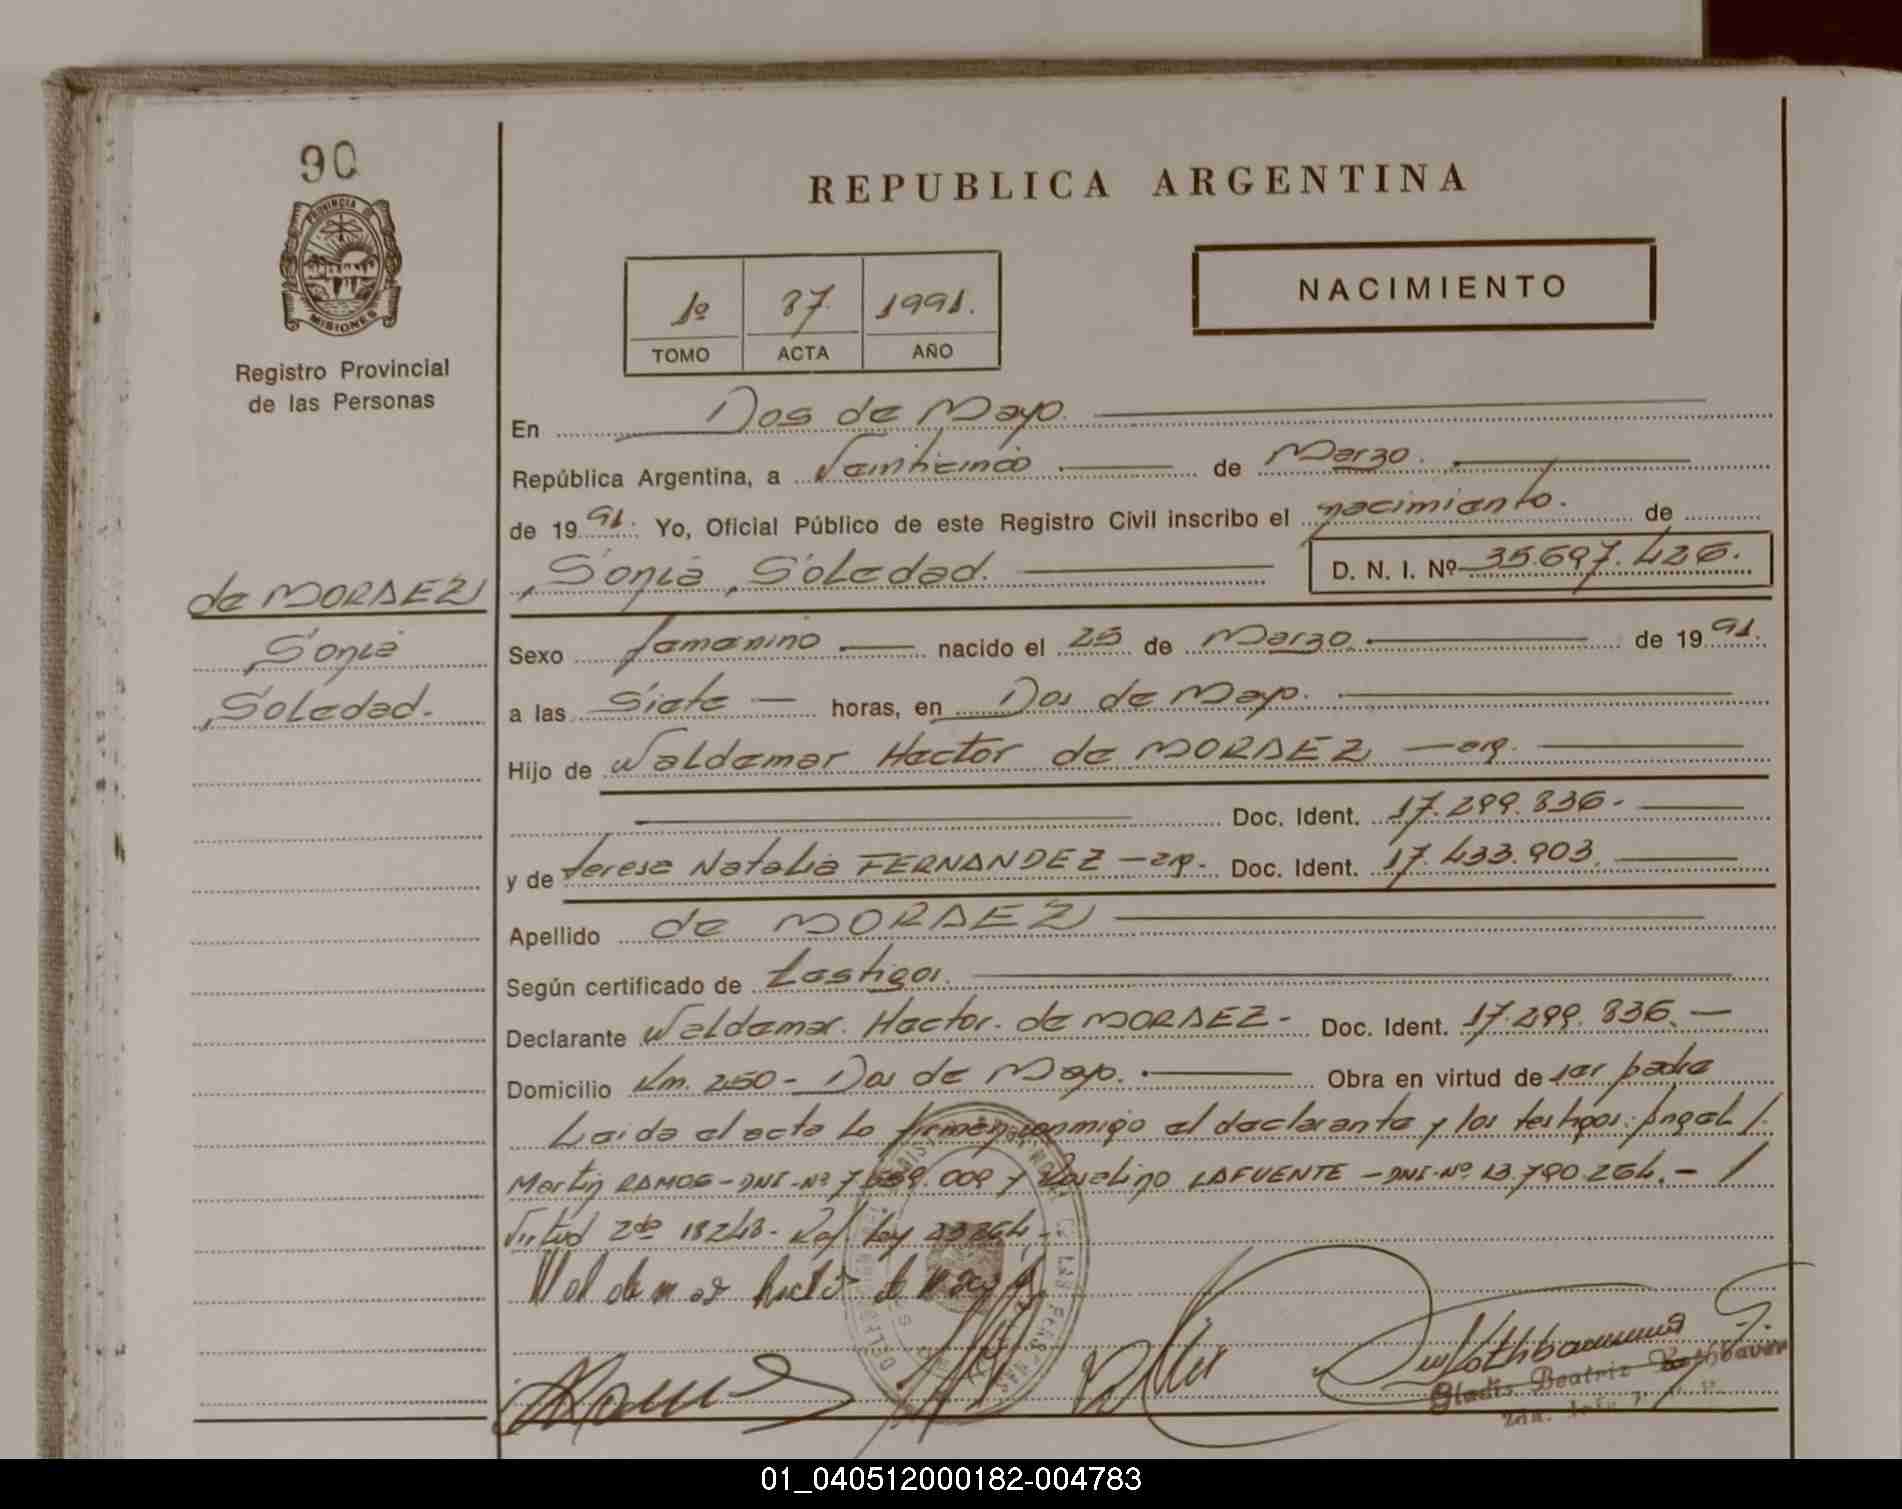 90
PROVINCIA DE
MISIONES
Registro Provincial
de las Personas
de MORAEZ
Sonia
Soledad.
REPUBLICA ARGENTINA
1º 87 1991.
TOMO ACTA AÑO
NACIMIENTO
En Dos de Mayo.
República Argentina, a Veinticinco de Marzo.
de 1991. Yo, Oficial Público de este Registro Civil inscribo el nacimiento. de
Sonia Soledad. D. N. I. Nº 35.697.426.
Sexo femenino nacido el 25 de Marzo. de 1991.
a las Siete horas, en Dos de Mayo.
Hijo de Waldemar Hector de MORAEZ -arg.
Doc. Ident. 17.299.836.
y de Teresa Natalia FERNANDEZ -arg. Doc. Ident. 17.433.903.
Apellido de MORAEZ
Según certificado de testigos.
Declarante Waldemar. Hector. de MORAEZ- Doc. Ident. 17.299.836.
Domicilio Km. 250- Dos de Mayo. Obra en virtud de ser padre
Leida el acta lo firman conmigo el declarante y los testigos: Angel
Martin RAMOS-DNI-Nº 009 y Rosalino LAFUENTE-DNI-Nº 13.790.264.-
Virtud 18248- Ref. Ley 23264-
Waldemar Hector de
Gladis Beatriz
01_040512000182-004783